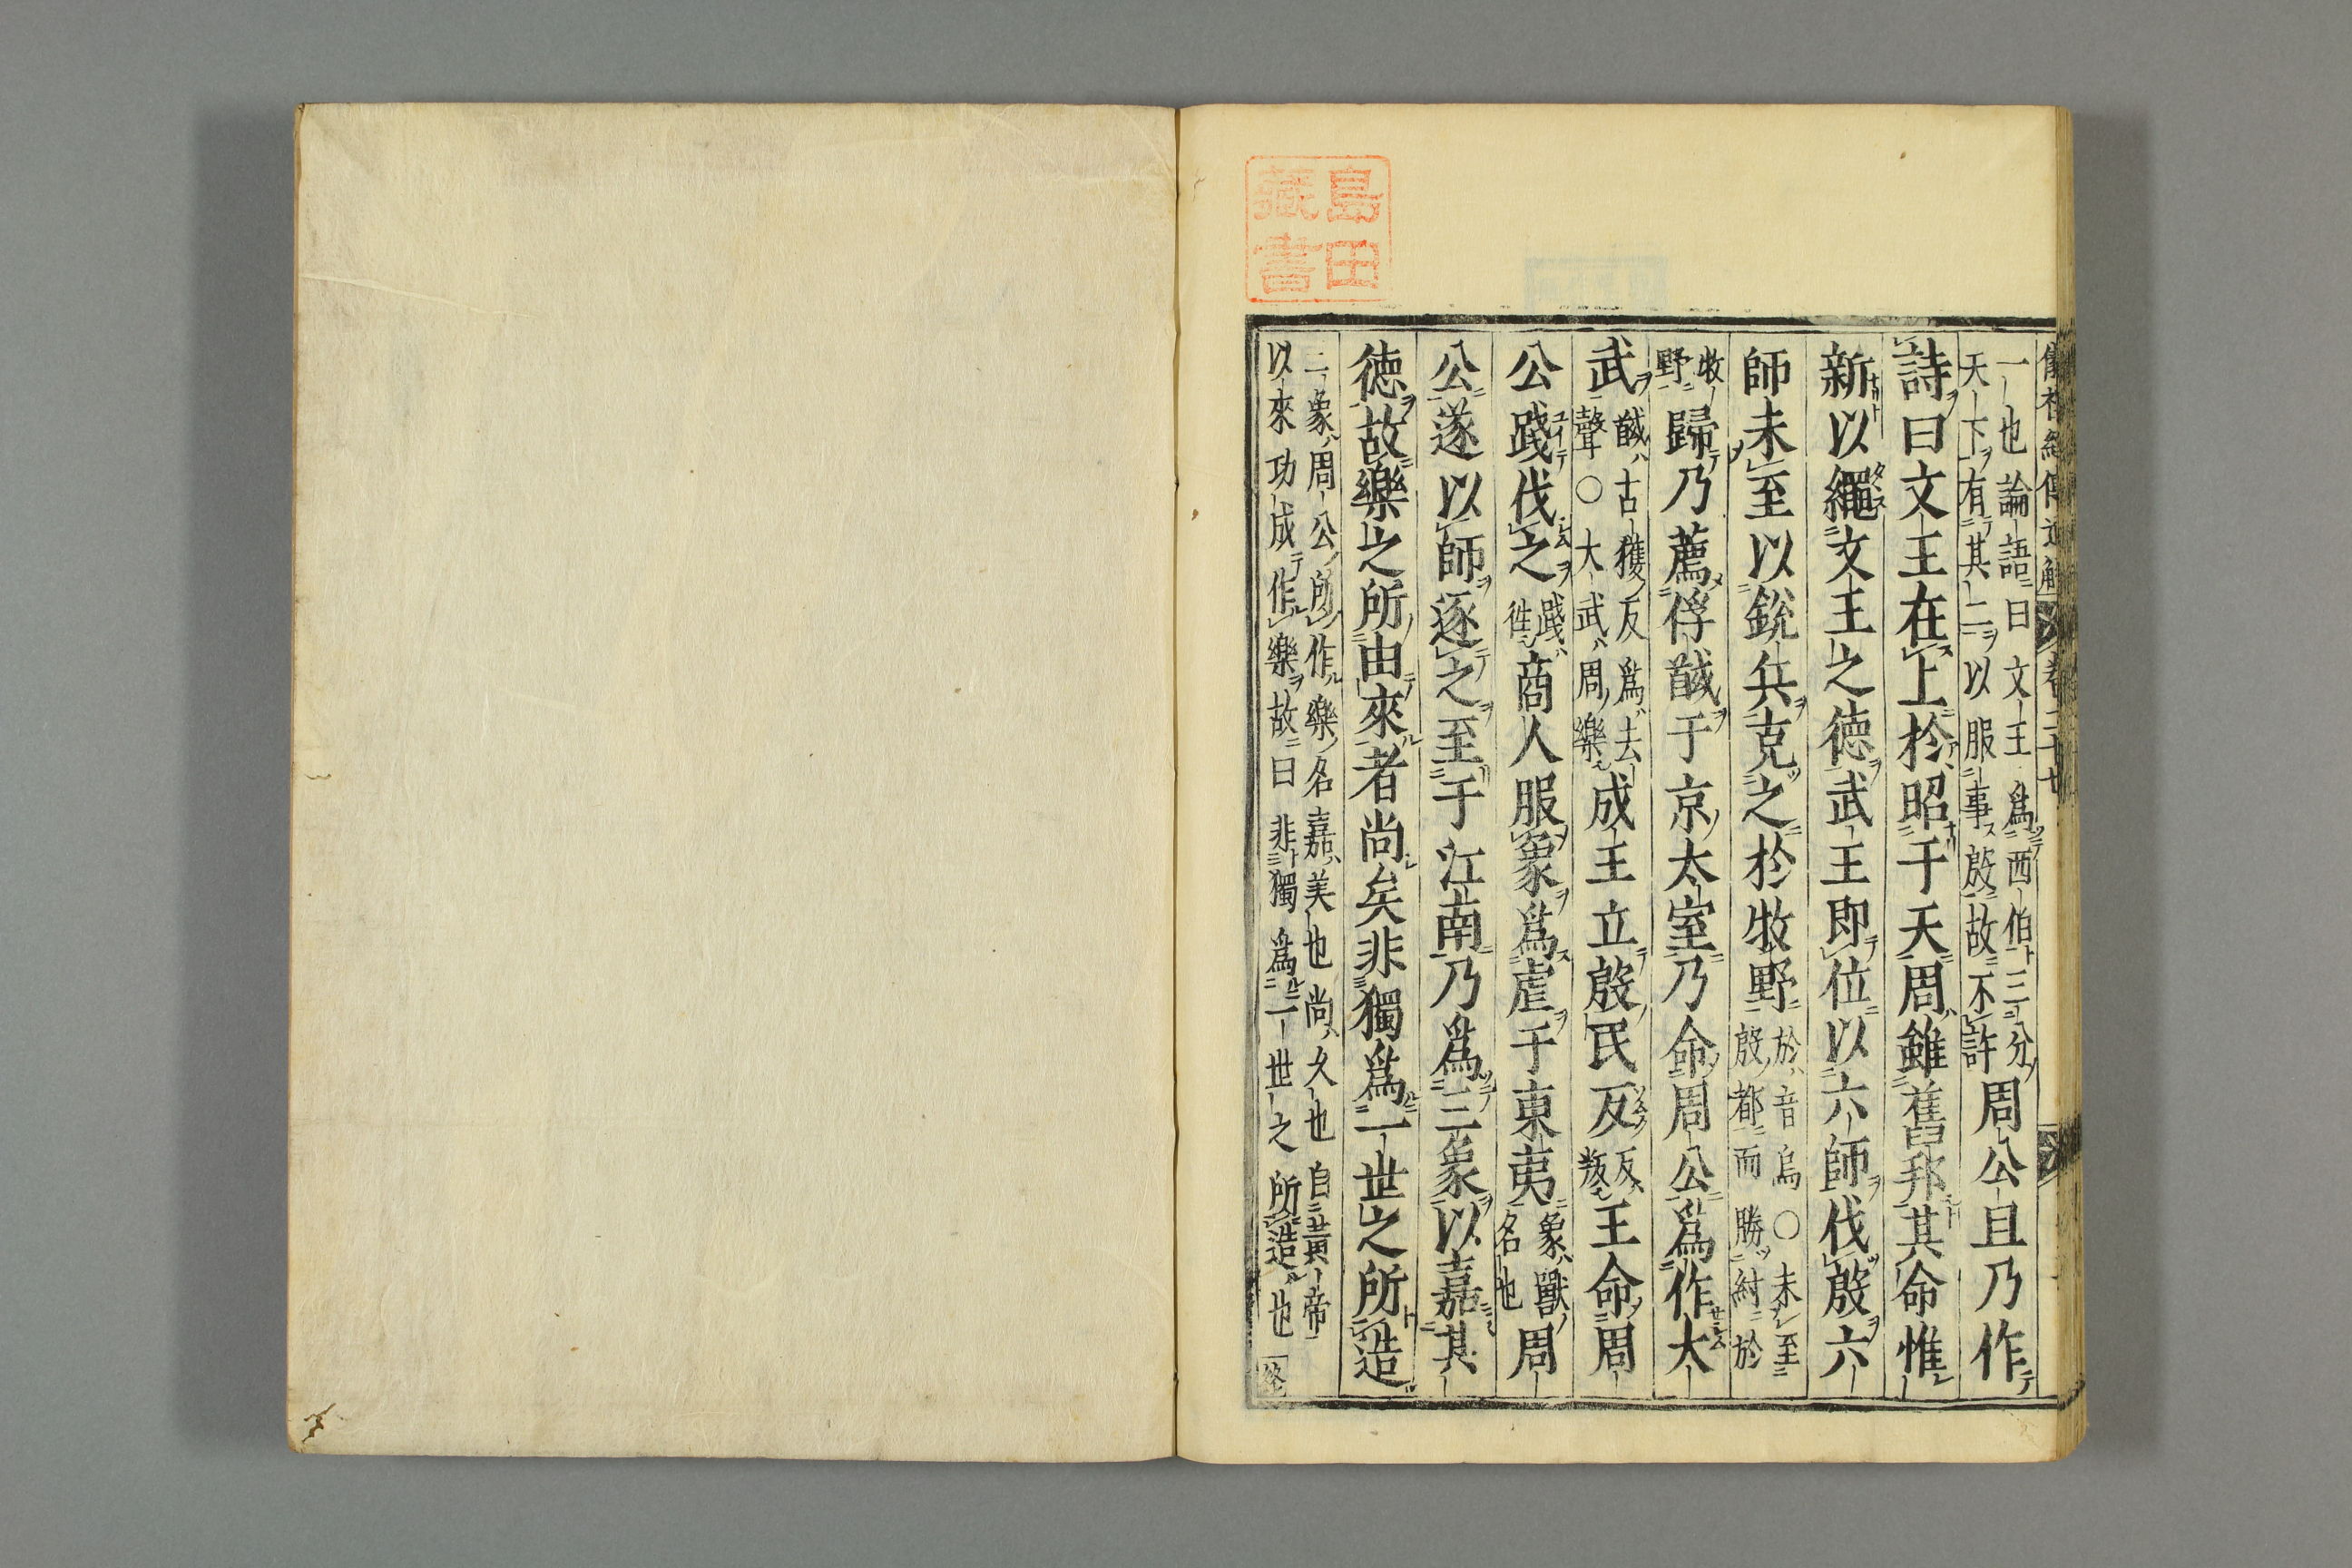 島田
藏書
儀禮經傳通解 卷二十七
一也論語曰文王爲西伯三分
天下有其二以服事殷故不許
周公旦乃作
詩曰文王在上於昭于天周雖舊邦其命惟
新以繩文王之德武王即位以六師伐殷六
師未至以銳兵克之於牧野
於音烏○未至
殷都而勝紂於
牧
野
歸乃薦俘馘于京太室乃命周公爲作大
武
馘古獲反爲去
聲○大武周樂
成王立殷民反
反
叛
王命周
公踐伐之
踐
徃
商人服象爲虐于東夷
象獸
名也
周
公遂以師逐之至于江南乃爲三象以嘉其
德故樂之所由來者尚矣非獨爲一世之所造
三象周公所作樂名嘉美也尚久也自黃帝
以來功成作樂故曰非獨爲一世之所造也